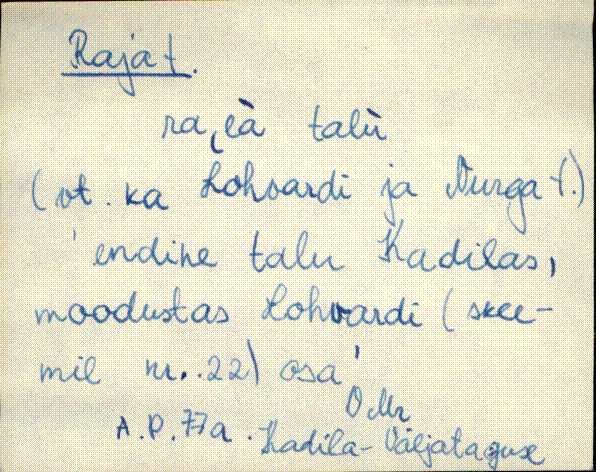 Raja t.
ra,eà talù
(vt. ka Lohvardi ja Nurga t.)
'endine talu Kadilas,
moodustas Lohvardi (skee-
mil nr. 22) osa'
A.P. 77a. Kadila-Väljataguse